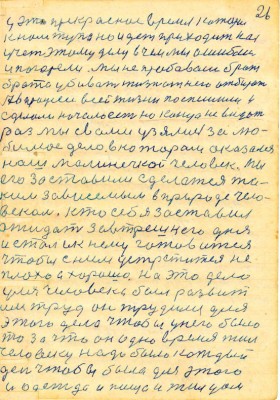 26
у это прекрасное время которое
к нам тупо но идет приходит как
учет этому делу в чем мы ошиблись
и погорели. Мы не пробовали брат
брата убивать жизнь у него отбирать
А в процессе всей жизни поспешили и
сделали началось но концу не видать
раз мы с вами взялись за лю-
бимое дело, в котором оказался
наш маленький человек. Мы
его заставили сделаться та-
ким зависимым в природе чело-
веком. Кто себя заставил
ожидать завтрешнего дня
и стал к нему готовится
чтобы с ним устретится не
плохо а хорошо. На это дело
для человека был развит
им труд он трудился для
этого дела чтобы у него было
то за что он одно время жил
человеку надо было каждый
ден чтобы была для этого
и одежда и пища и жил дом